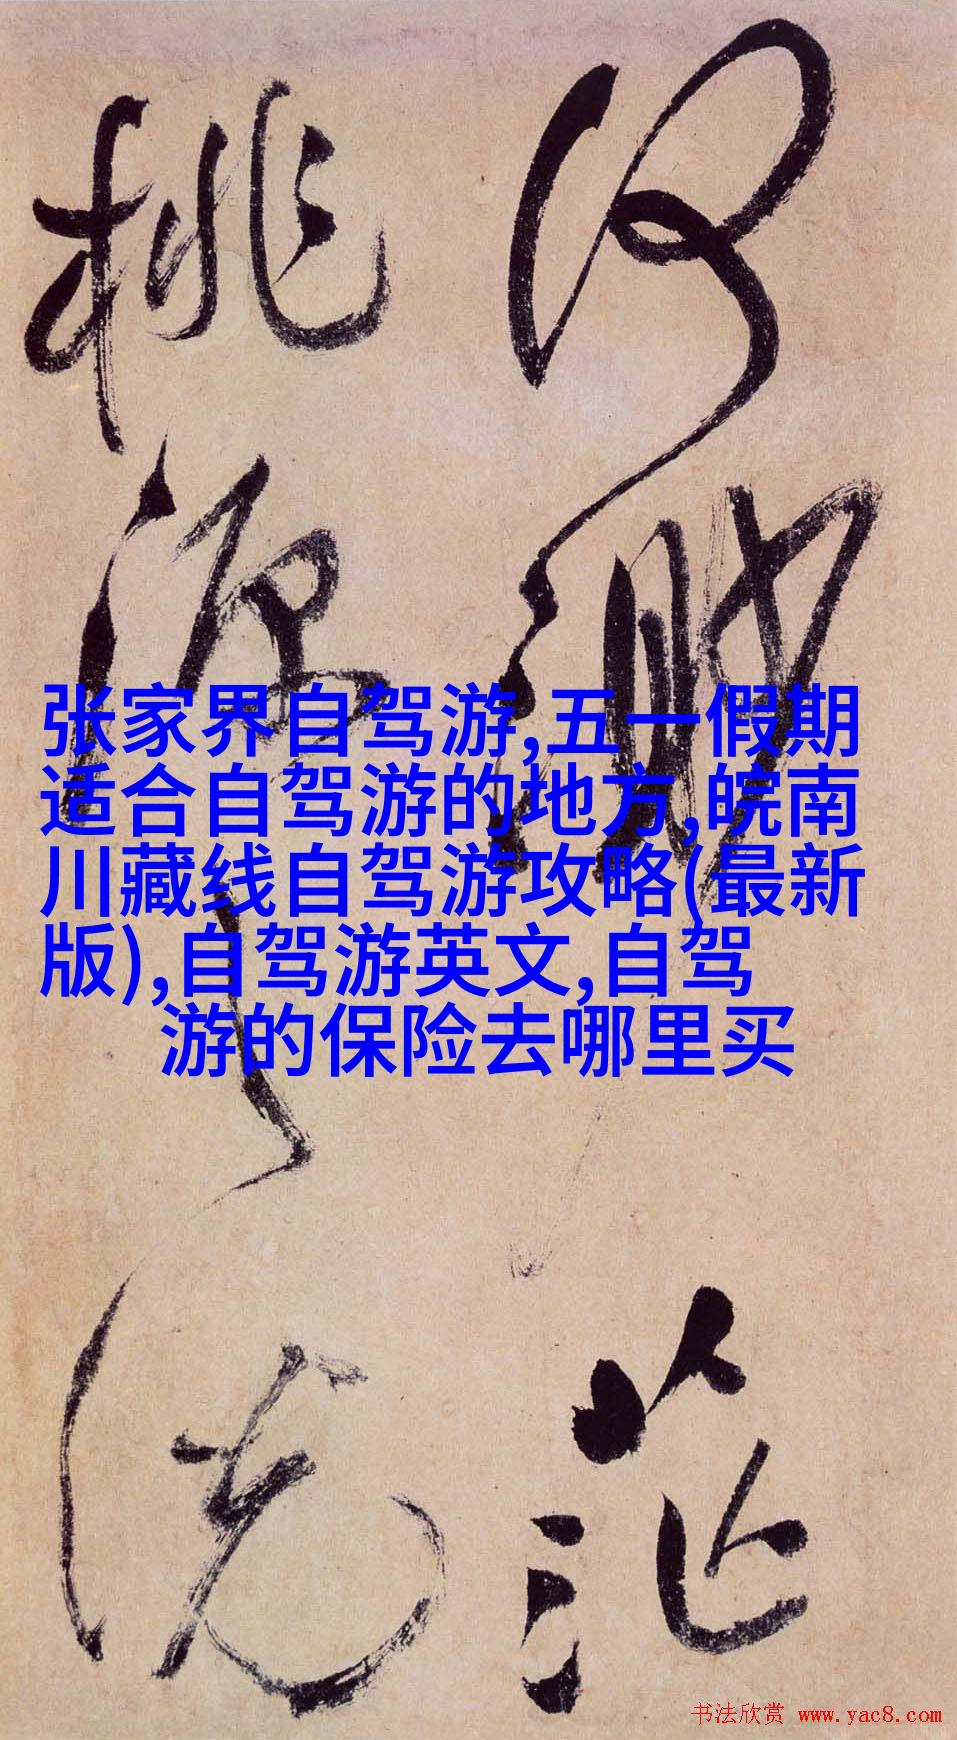 何渺茫
桃源之說
张家界自驾游,五一假期
适合自驾游的地方,皖南
川藏线自驾游攻略(最新
版),自驾游英文,自驾
游的保险去哪里买
书法欣赏 www.yac8.com